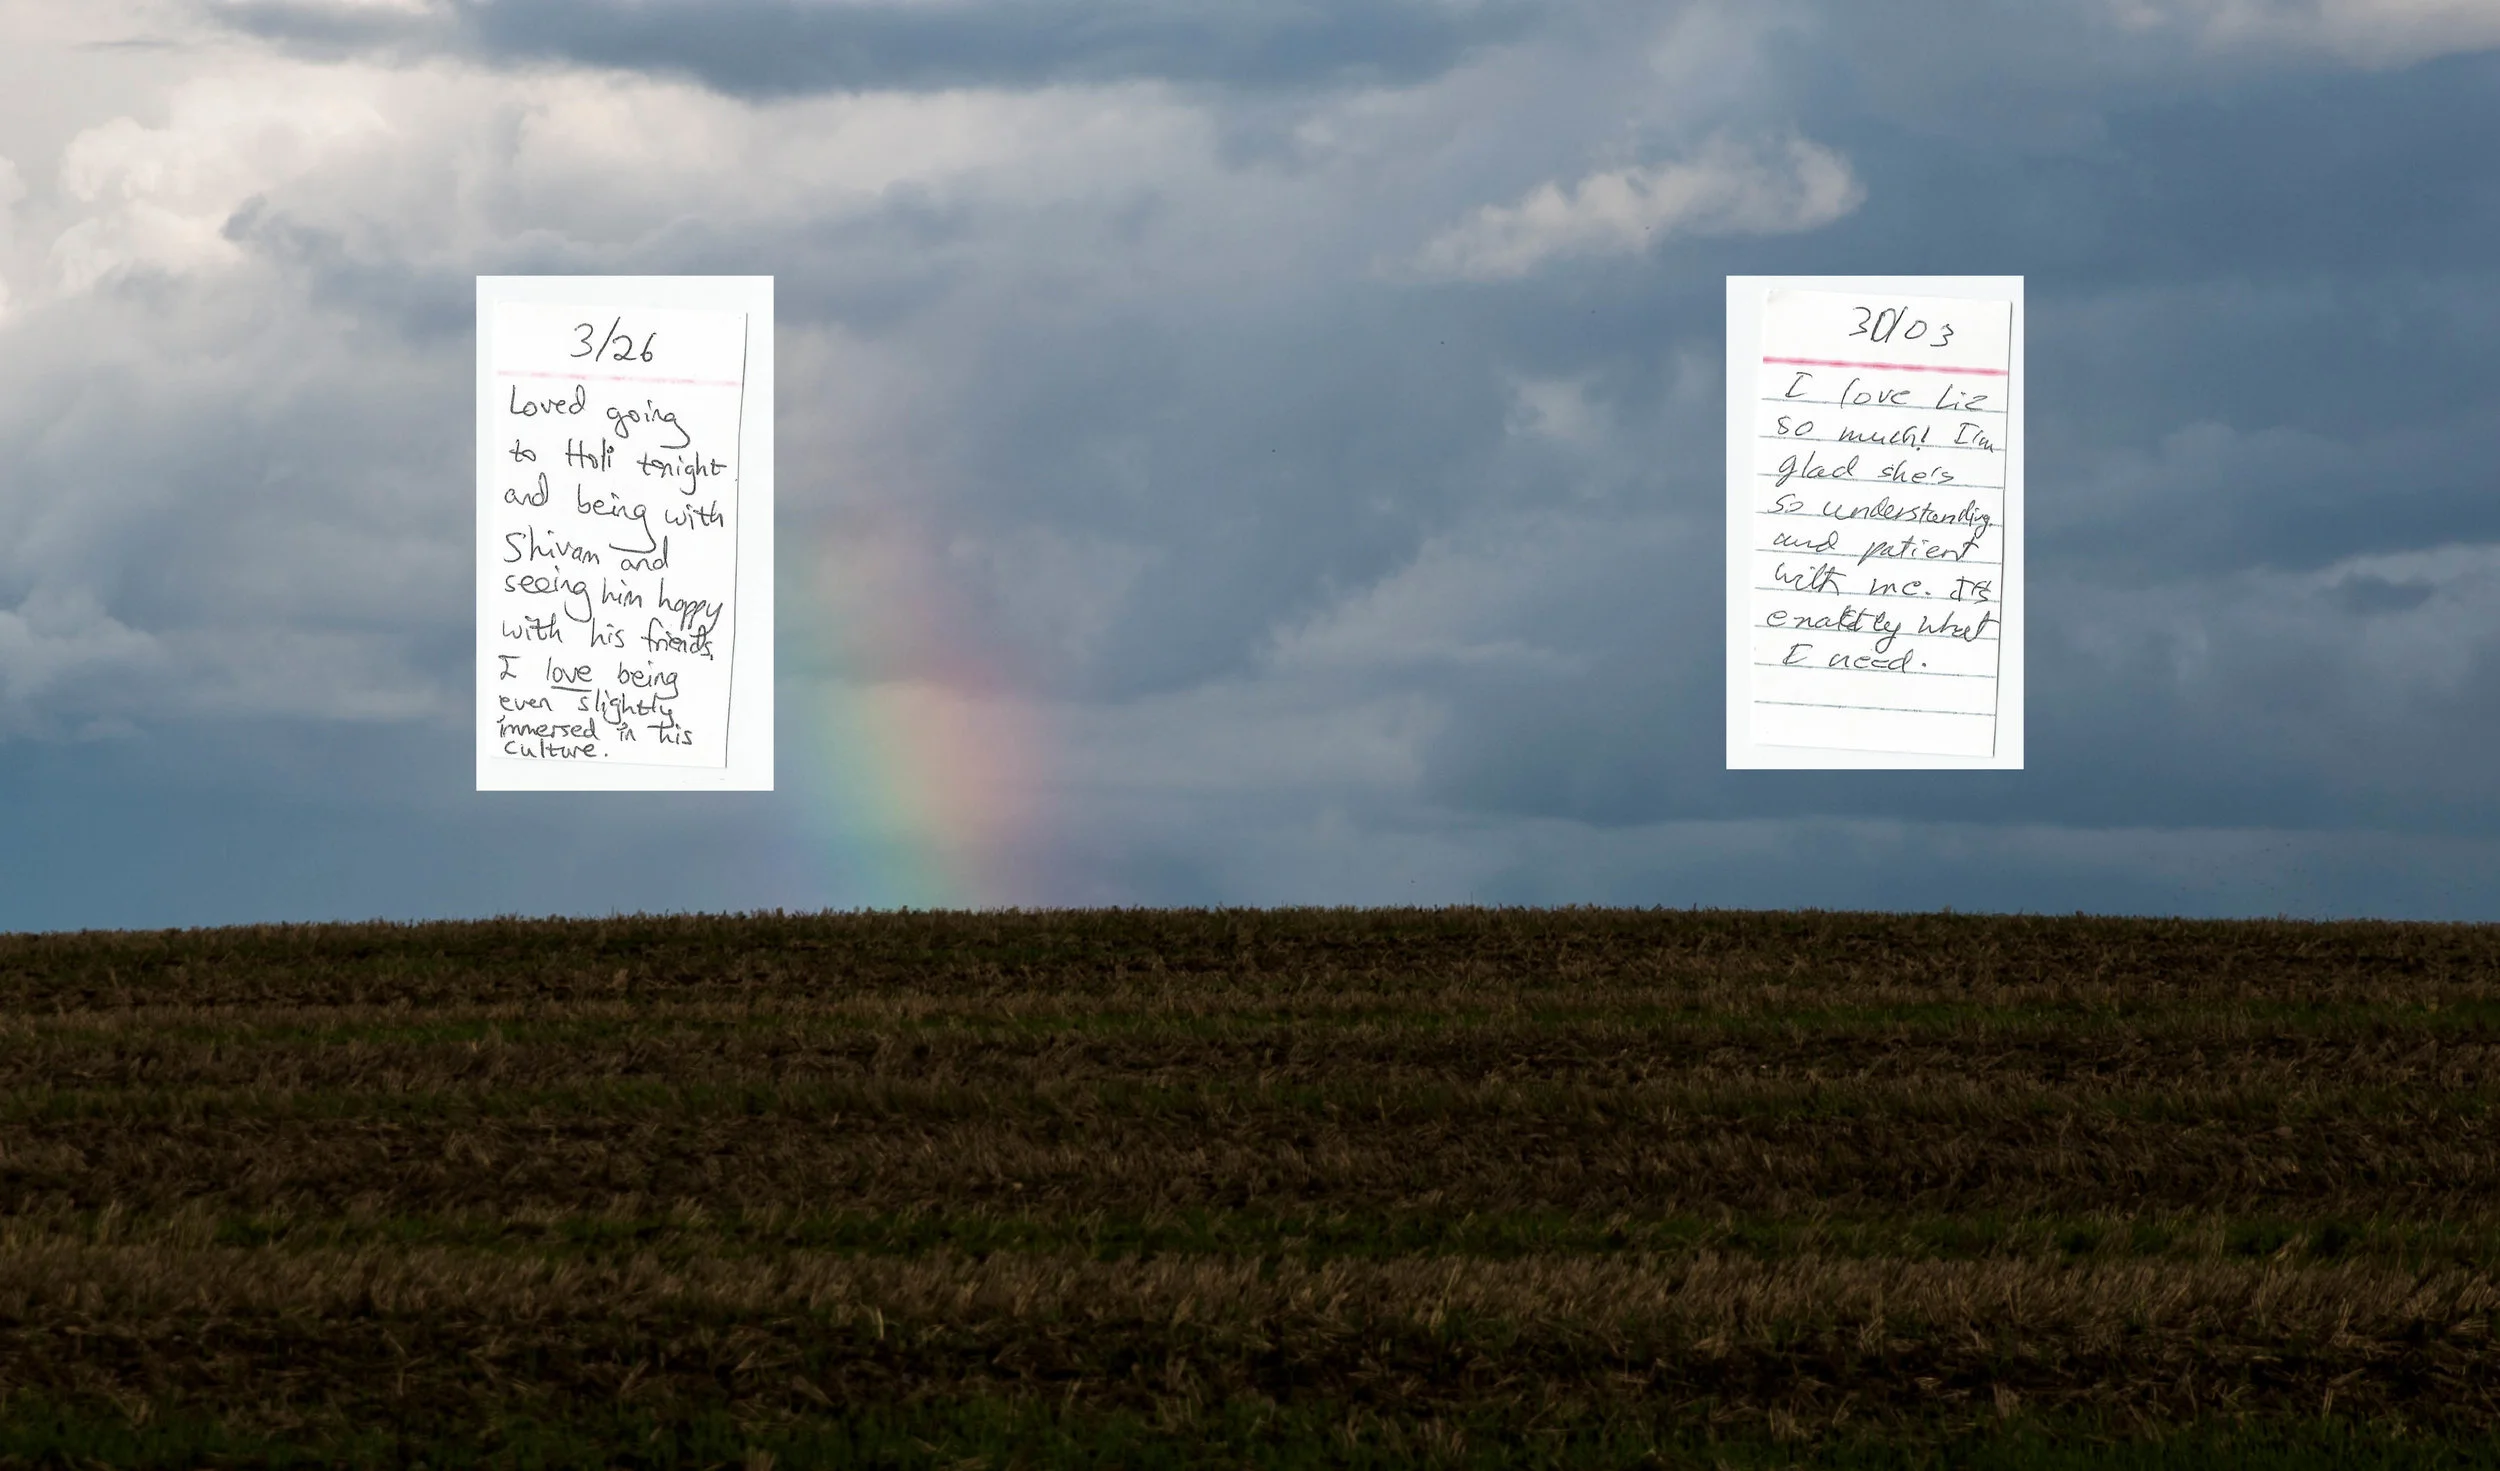 3/26
Loved going
to Holi tonight
and being with
Shivam and
seeing him happy
with his friends.
I love being
even slightly
immersed in his
culture.
30/03
I love Liz
so much! I'm
glad she's
so understanding
and patient
with me. It's
exaktly what
I need.